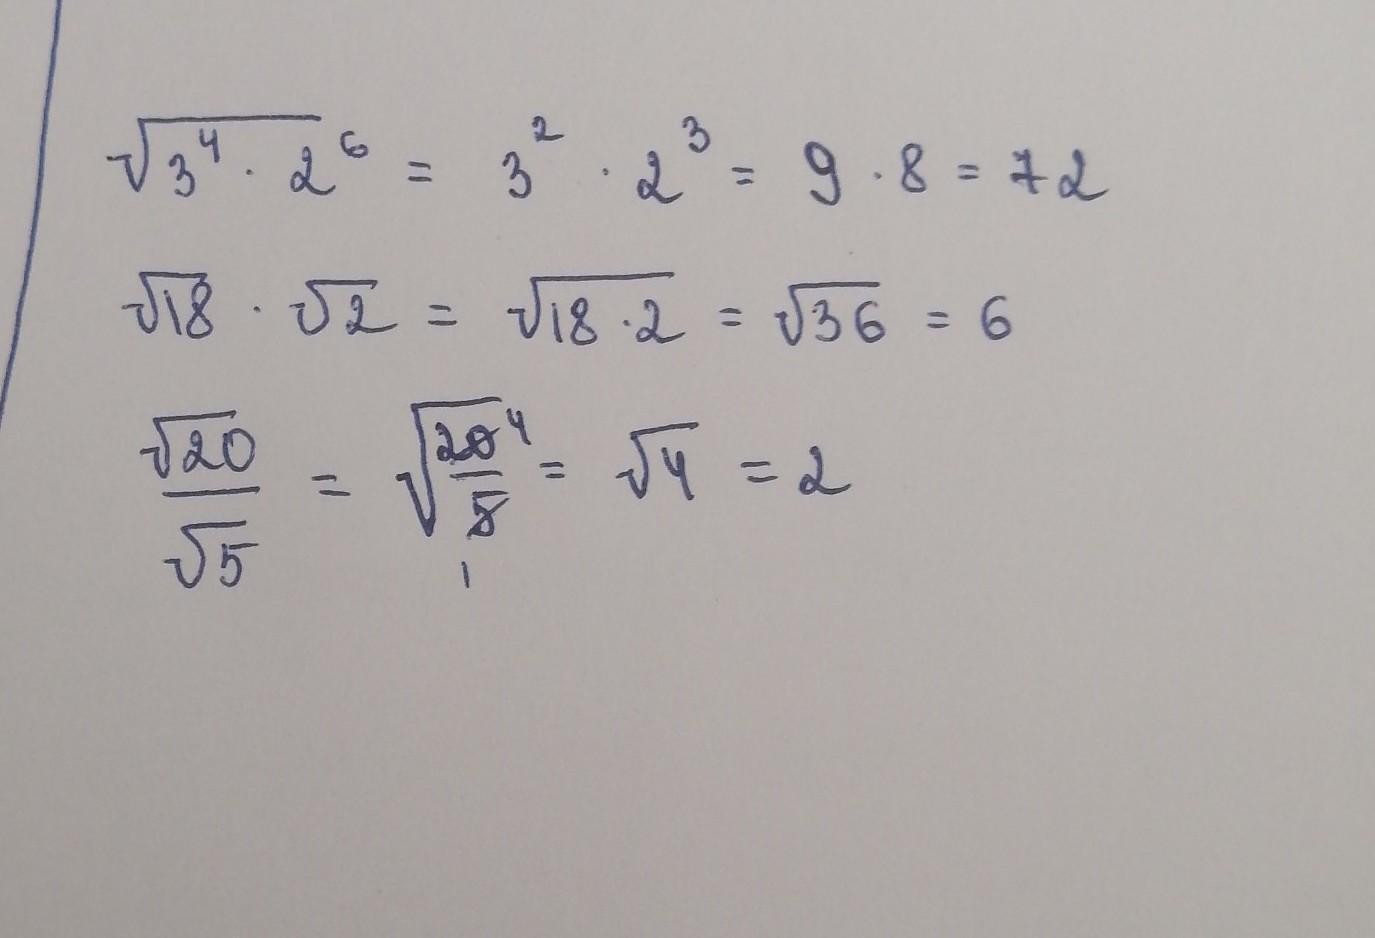 √(3⁴ · 2⁶) = 3² · 2³ = 9 · 8 = 72
√18 · √2 = √(18 · 2) = √36 = 6
√20/√5 = √(20⁴/5₁) = √4 = 2